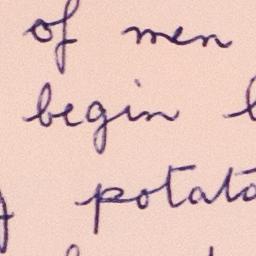 of men
begin
potato